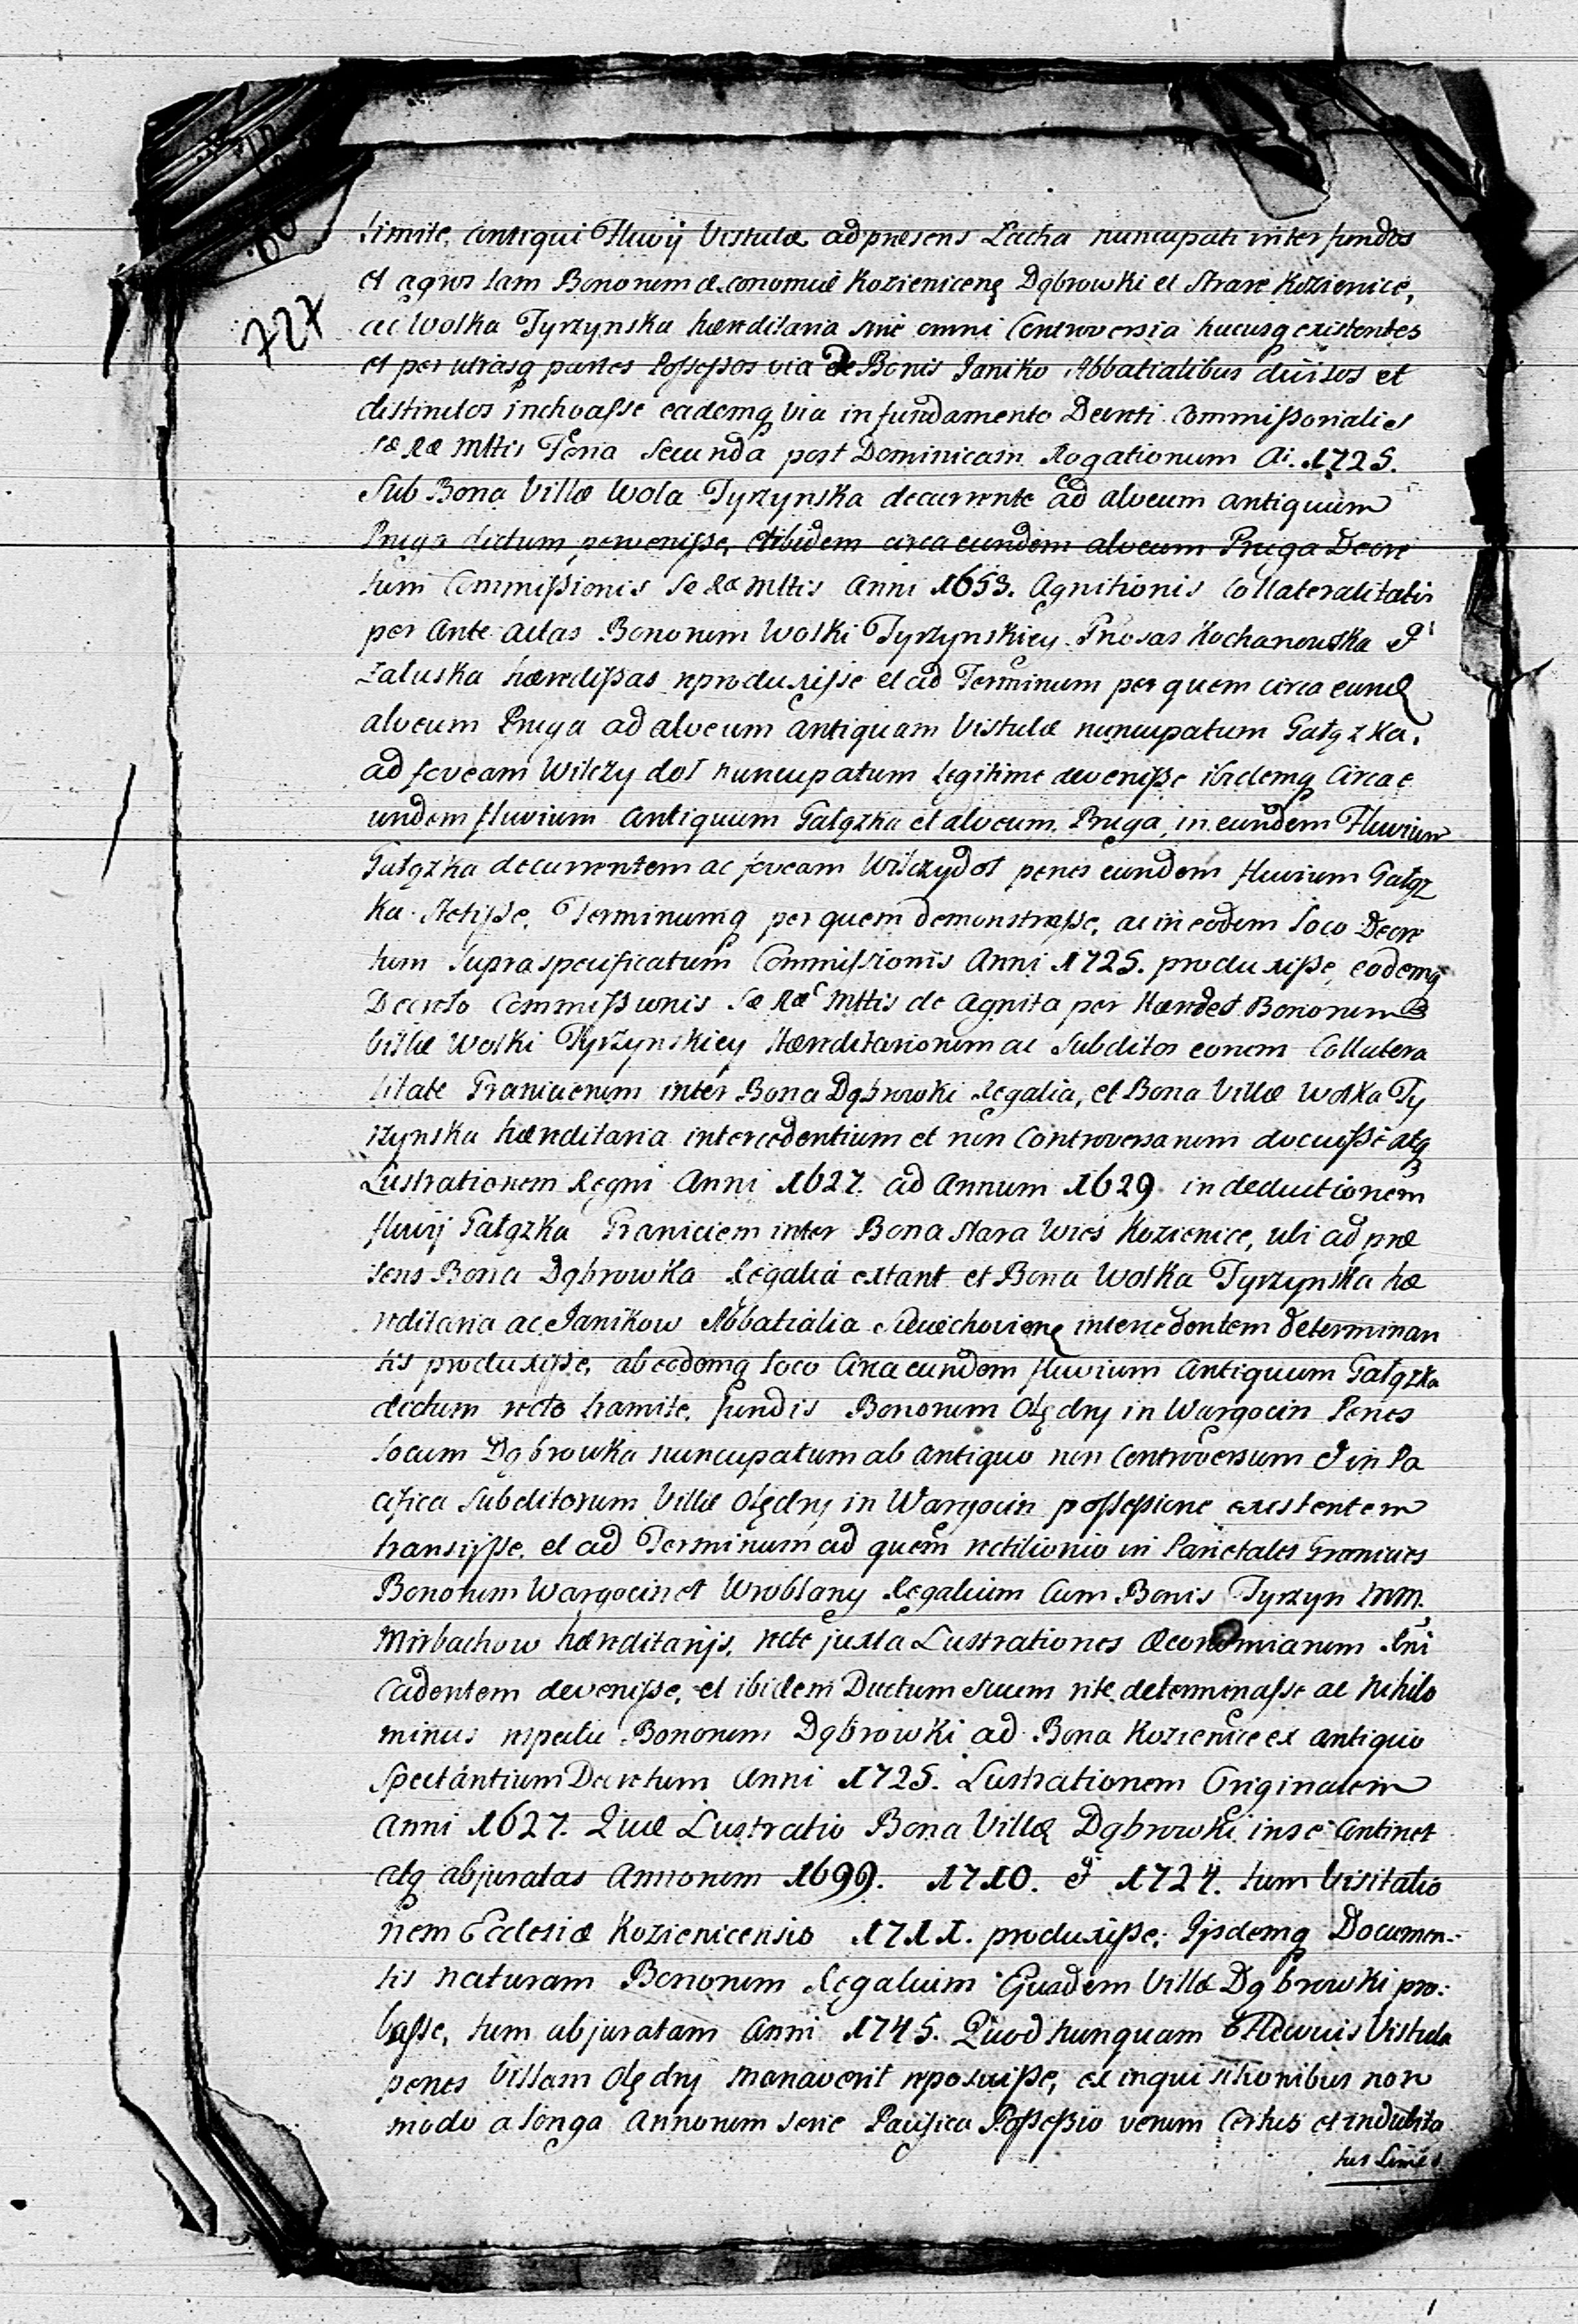 limite, antiqui Fluvij Vistulæ ad præsens Łacha nuncupati inter fundos
et agros tam Bonorum œconomiæ Kozienicens Dąbrowki et Stare Kozienice,
ac Wolka Tyrzynska hæreditaria sine omni Controversia hucusq existentes
et per utrasq partes Possessos via de Bonis Janiko Abbatialibus divisos et
distinctos inchoasse eademq via in fundamento Decreti Commissorialis
Sæ Ræ Mttis Feria Secunda post Dominicam Rogationum Ai. 1725.
Sub Bona Villæ Wola Tyrzynska decurrente ad alveum antiquum
Pruga dictum pervenisse, etibidem circa eundem alveum Pruga Decre
tum Commissionis Sæ Ræ Mttis Anni 1653. Agnitionis Collateralitatis
per Ante actas Bonorum Wolki Tyrzynskiey Gnosas Kochanowska et
Załuska hæredissas reproduxisse et ad Terminum per quem circa eund
alveum Pruga ad alveum antiquam Vistulæ nuncupatum Gałązka,
ad foveam Wilczy doł nuncupatum legitime devenisse ibidemq Circa e
undem fluvium Antiquum Gałązka et alveum Pruga, in eundem Fluvium
Gałązka decurrentem ac foveam Wilczydoł penes eundem fluvium Gałąz
ka Stetisse, Terminumq per quem demonstrasse, ac in eodem loco Decre
tum Supraspecificatum Commissionis Anni 1725. produxisse, eodemq
Decreto Commissionis Sæ Ræ Mttis de Agnita per Hæredes Bonorum
Villæ Wolki Tyrzynskiey Hæreditariorum ac Subditos eorum Collatera
litate Granicierum inter Bona Dąbrowki Regalia, et Bona Villæ Wolka Ty
rzynska hæreditaria intercedentium et non Controversarum docuisse atq
Lustrationem Regni Anni 1627. ad Annum 1629 in deductionem
fluvij Gałązka Graniciem inter Bona Stara Wieś Kozienice, ubi ad præ
sens Bona Dąbrowka Regalia extant et Bona Wolka Tyrzynska hæ
reditaria ac Janikow Abbatialia intercedentem determinan
tis produxisse, ab eodemq loco Circa eundem fluvium Antiquum Gałązka
dictum recto tramite, fundis Bonorum Olędry in Wargocin Penes
locum Dąbrowka nuncupatum ab antiquo non Controversum et in Pa
cifica Subditorum Villæ Olędry in Wargocin possessione existentem
transijsse, et ad Terminum ad quem rectilionio in Parietales Granicies
Bonorum Wargocin et Wroblany Regalium Cum Bonis Tyrzyn MM.
Mirbachow hæreditarijs, recte juxta Lustrationes Œconomiarum Rni
Cadentem devenisse, et ibidem Ductum Suum rite determinasse ac Nihilo
minus respectu Bonorum Dąbrowki ad Bona Kozienice ex antiquo
Spectántium Decretum Anni 1725. Lustrationem Originalem
Anni 1627. Quæ Lustratio Bona Villæ Dąbrowki in se Continet
atq abjuratas Annorum 1699. 1710. et 1724. tum Visitatio
nem Ecclesiæ Kozienicensis 1711. produxisse, Ijsdemq Documen-
tis naturam Bonorum Regalium Ejusdem Villæ Dąbrowki pro:
basse, tum abjuratam Anni 1745. Quod nunquam Fluvius Vistula
penes Villam Olędry Manaverit reposuisse, ex inquisitionibus non
modo a longa Annorum Serie Pacifica Possessio verum Certus et indubita
tus Limes
727